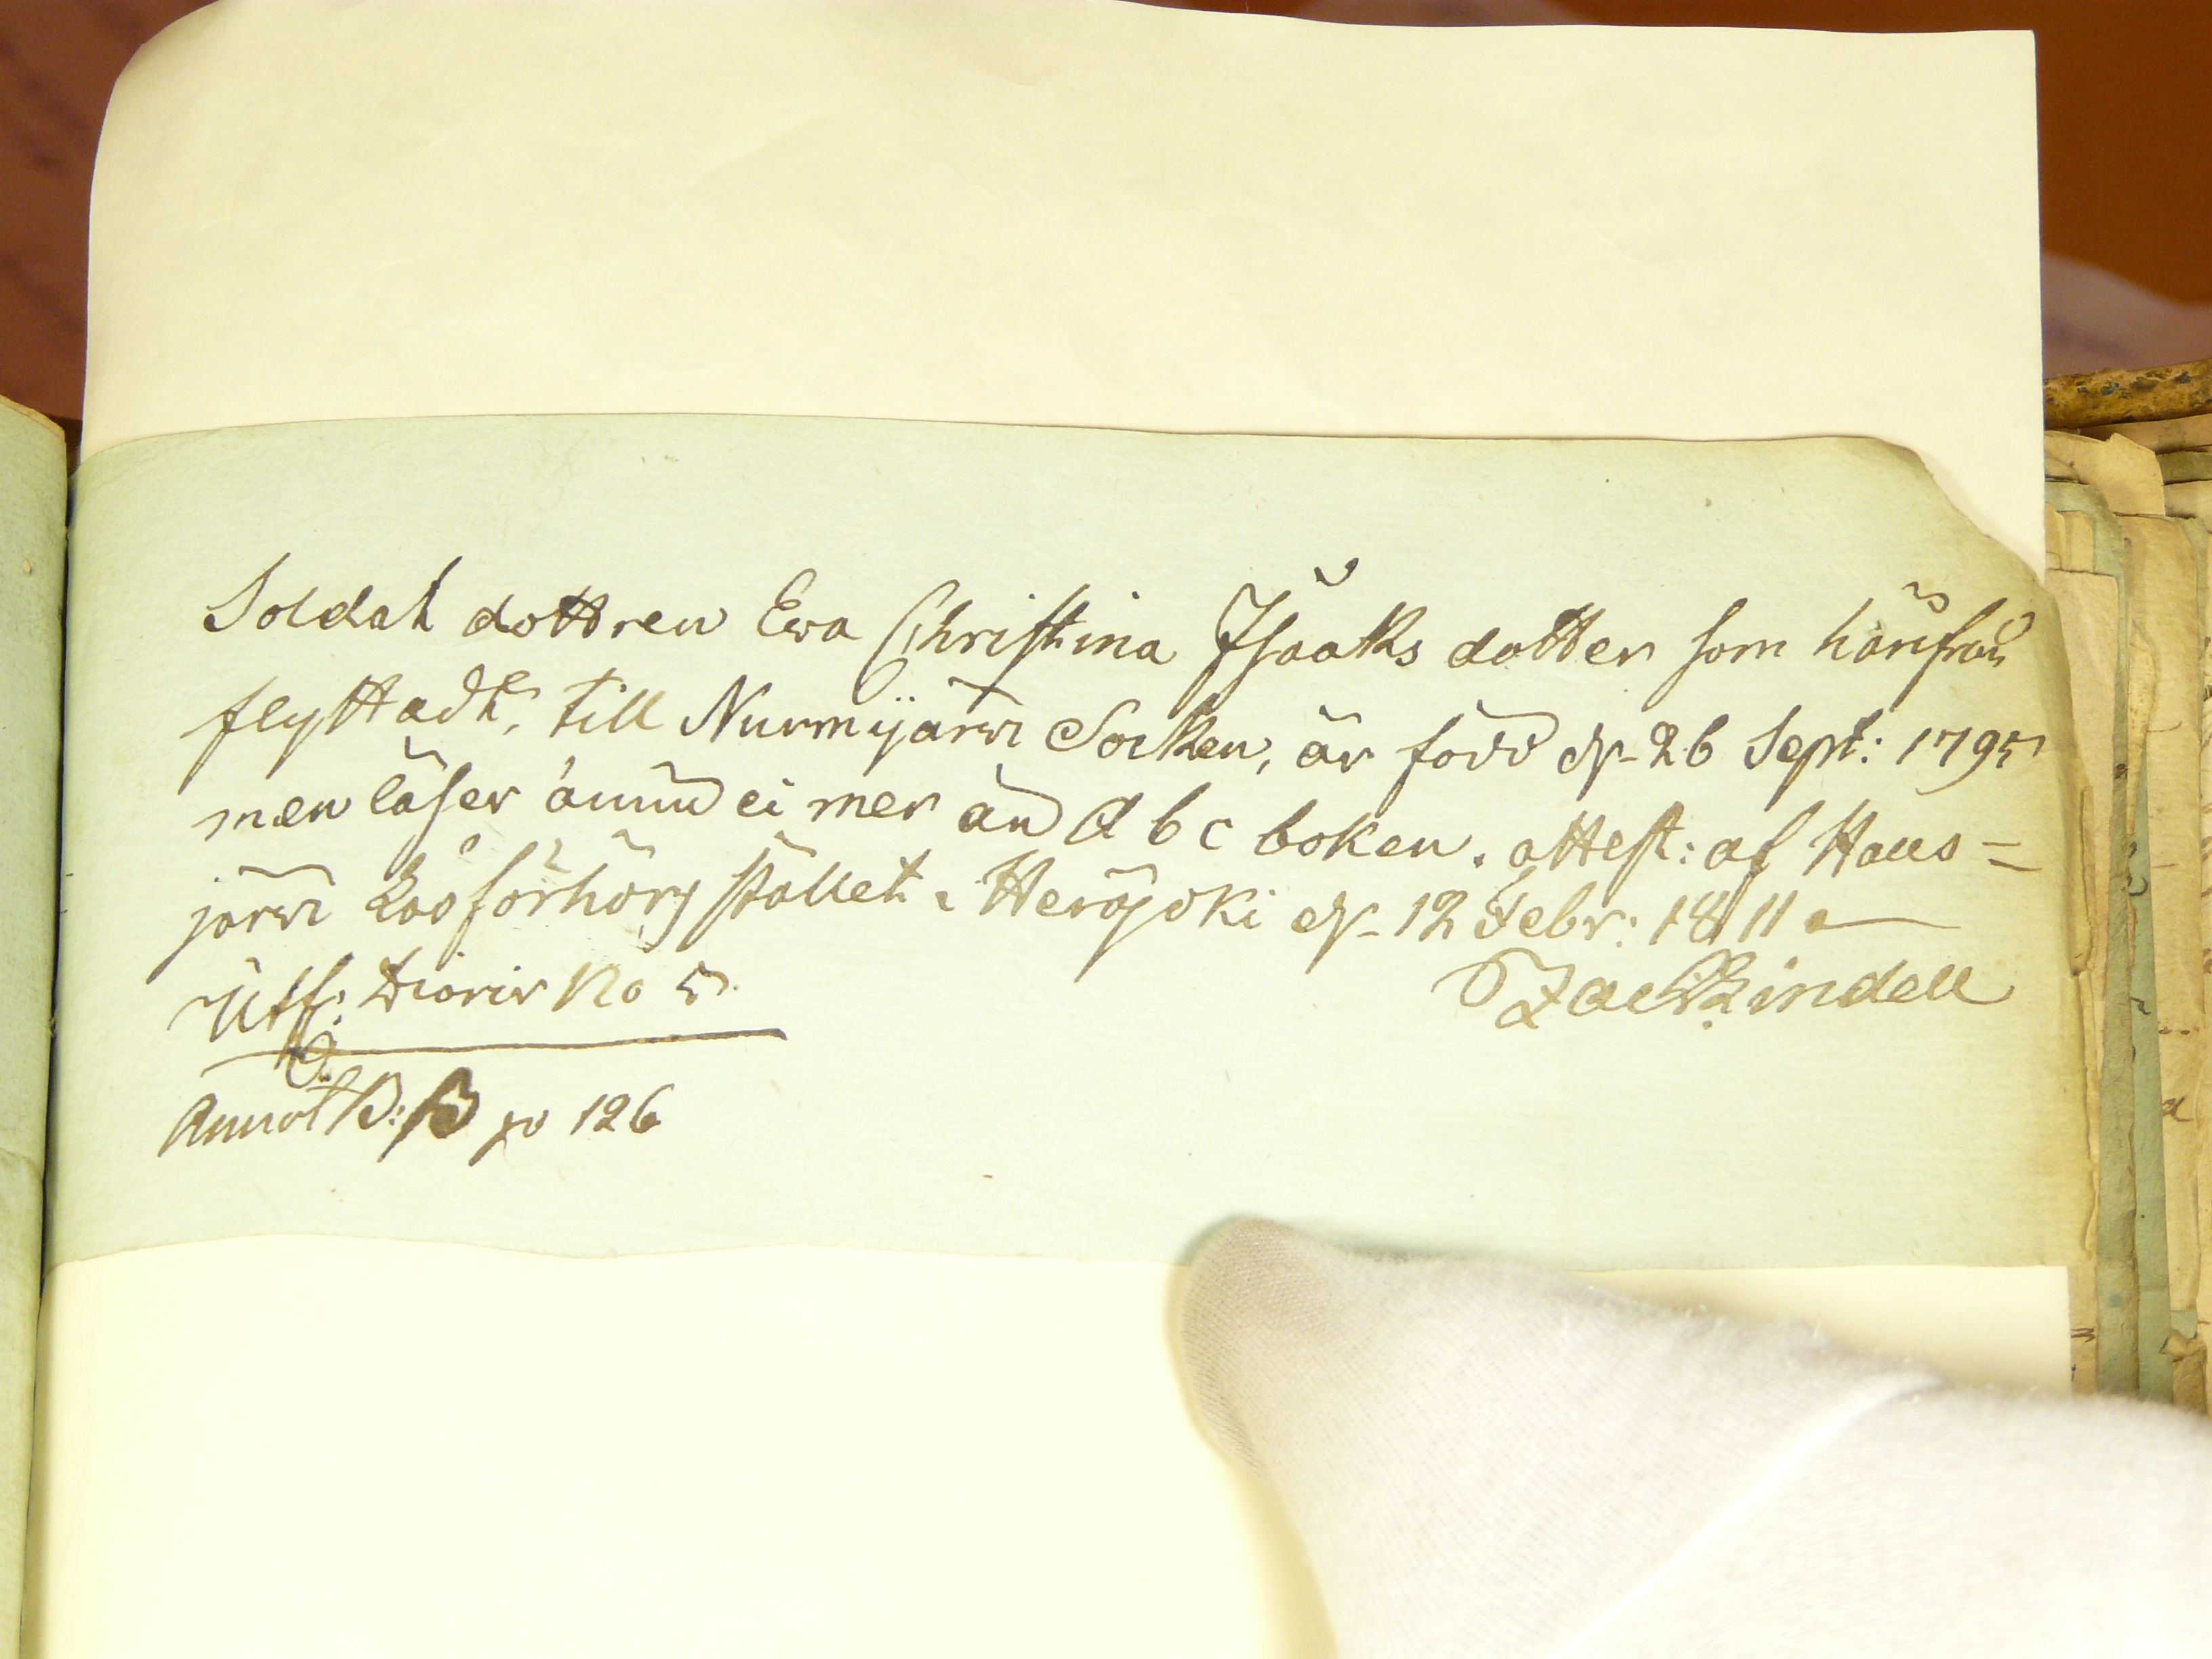 Soldat dottren Ewa Christina Isaaks dotter som härifrån
flyttadt, till Nurmijärvi Socken, är född d. 26 Sept: 1795
men läser ännu ei mer än A b c boken. attest: af Haus=
järvi Läsförhörs stället i Herajoki d. 12 Febr: 1811
Zach Lindell
Utf: Diarie No 5.
Annot B: B p 126